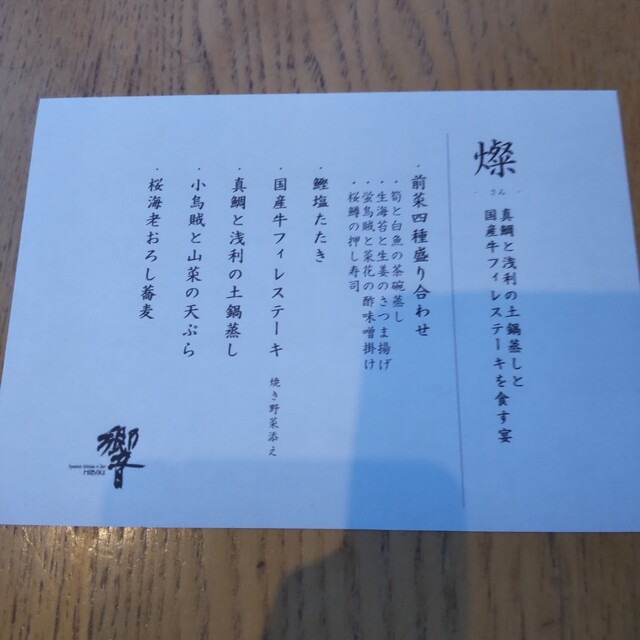 燦
- さん -
真鯛と浅利の土鍋蒸しと
国産牛フィレステーキを食す宴
・前菜四種盛り合わせ
・筍と白魚の茶碗蒸し
・生海苔と生姜のさつま揚げ
・蛍烏賊と菜花の酢味噌掛け
・桜鱒の押し寿司
・鰹塩たたき
・国産牛フィレステーキ 焼き野菜添え
・真鯛と浅利の土鍋蒸し
・小烏賊と山菜の天ぷら
・桜海老おろし蕎麦
響
HIBIKI